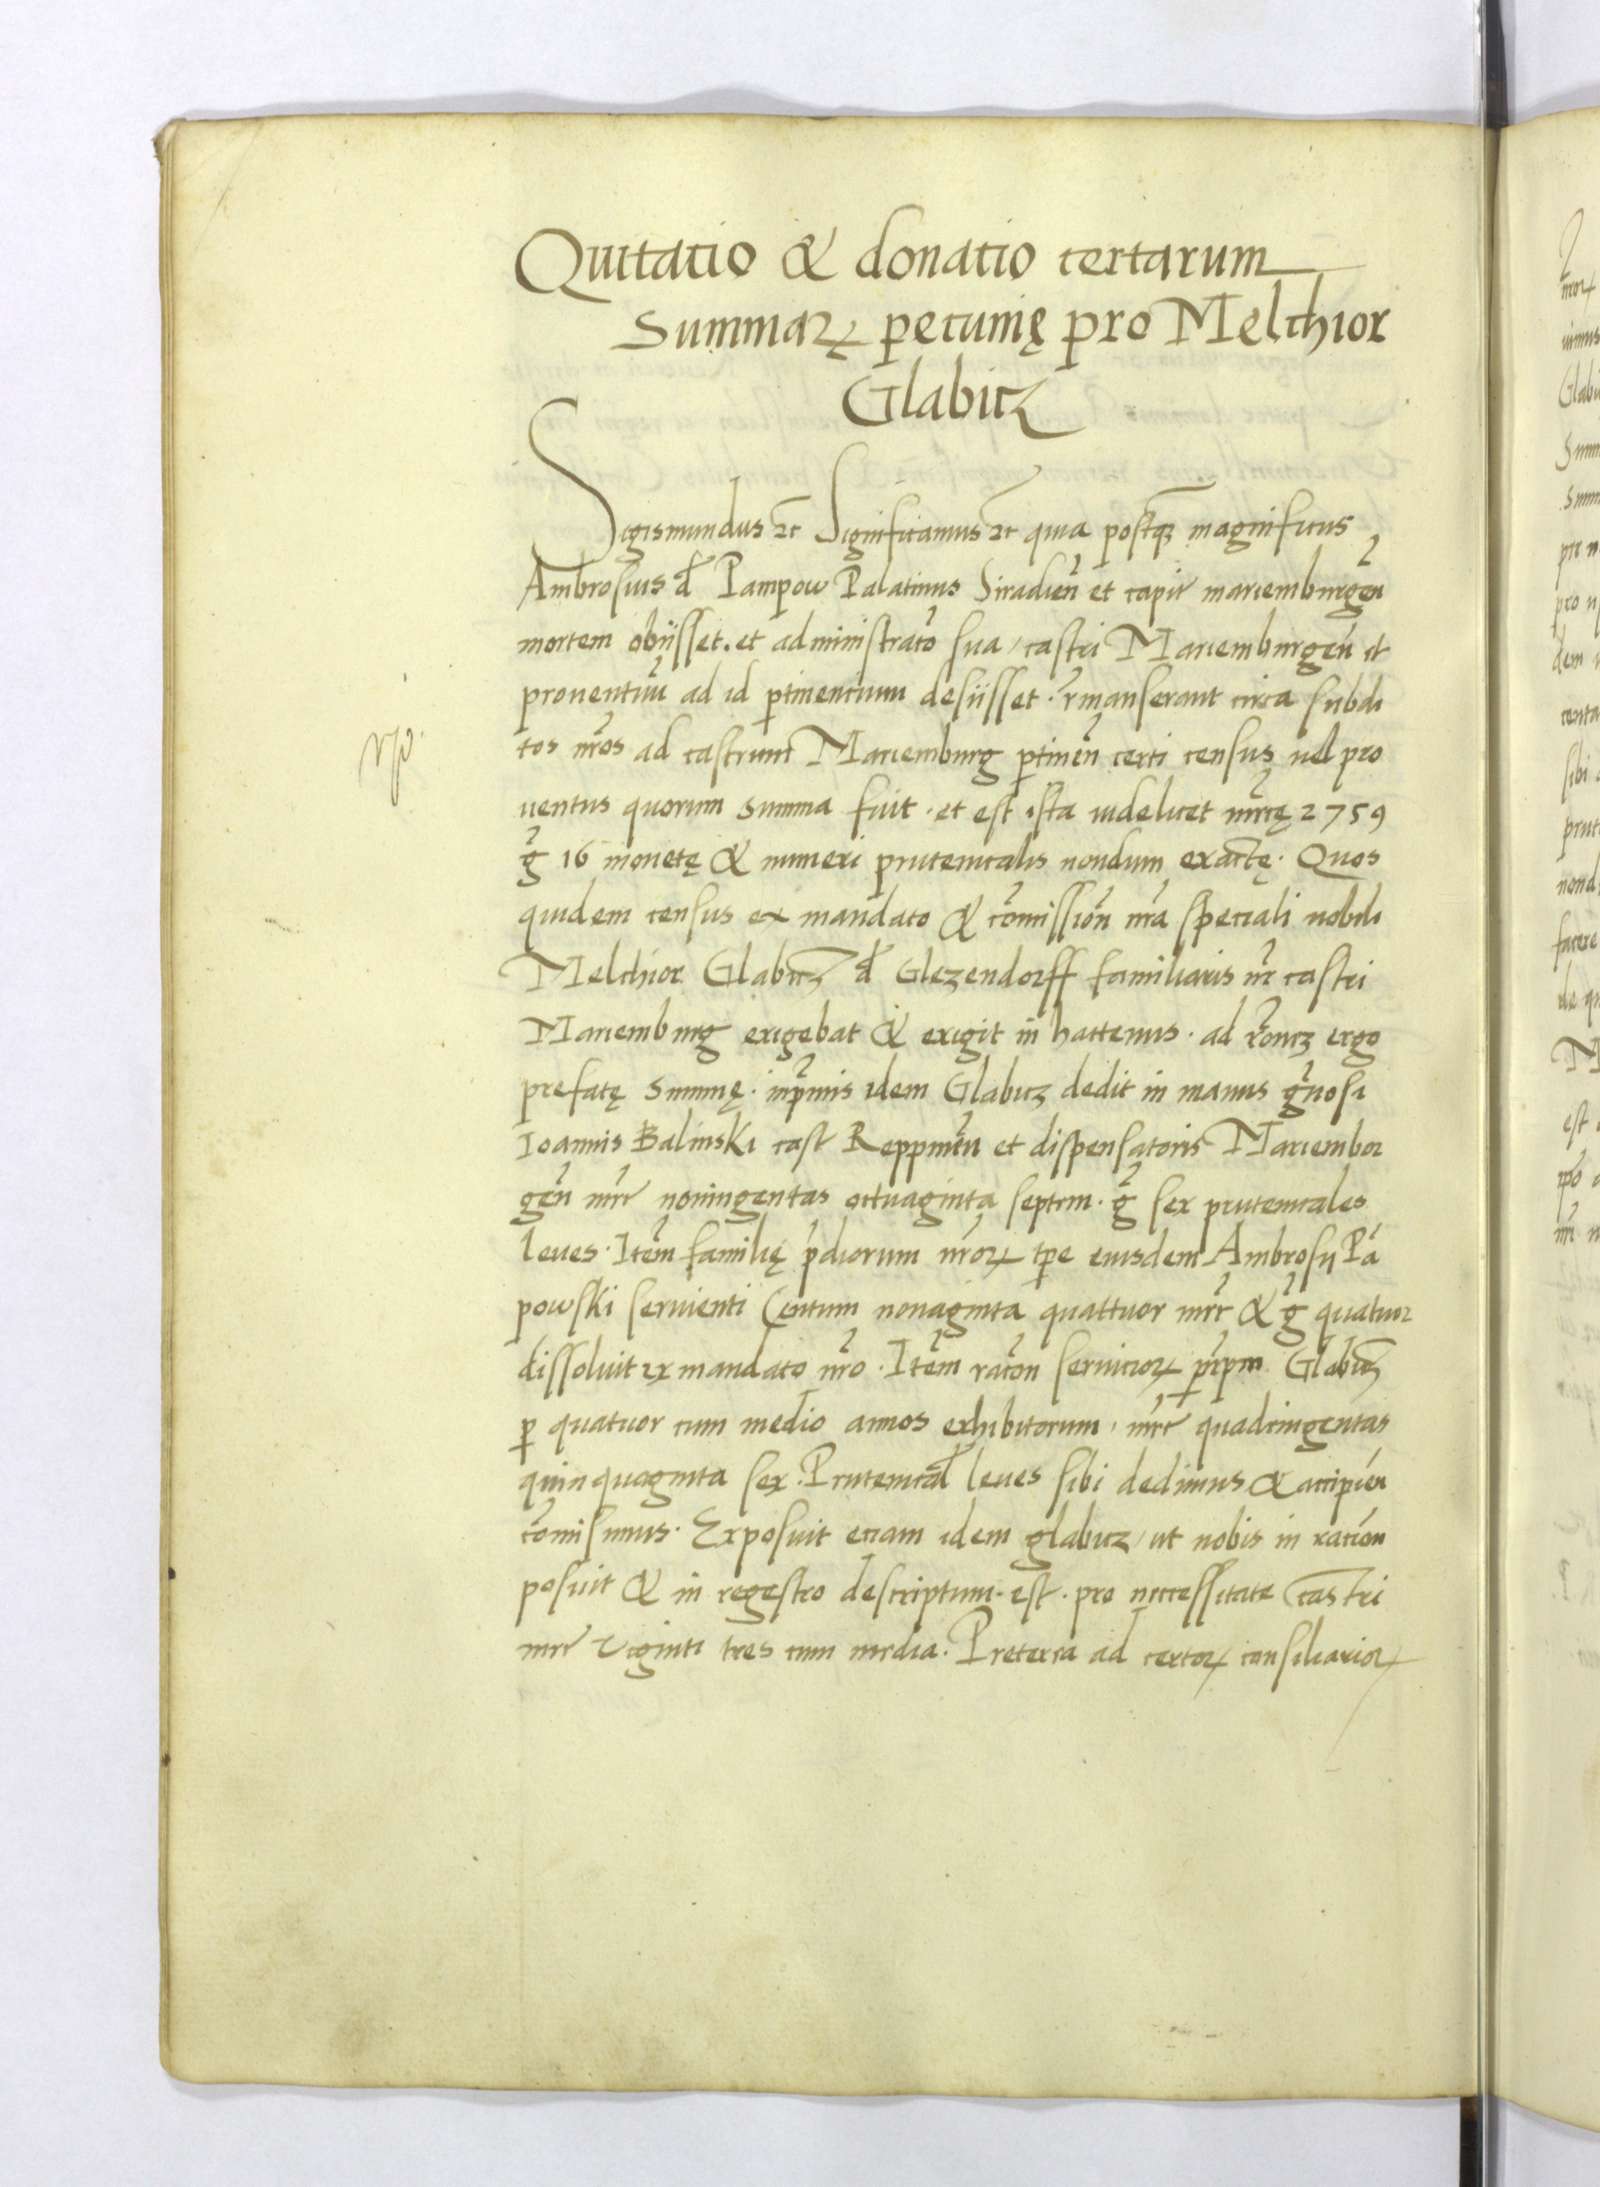 Quitatio & donatio certarum
Summaꝝ pecunię pro Melchior
Glabicz
Sigismundus ꝛc Significamus ꝛc quia postꝗ magnificus
Ambrosius d Pampow Palatinus Siradien̄ et capit̄ mariemburgen̄
mortem obijsset. et administrato͞ sua, castri Mariemburgen̄ et
prouentuu̅ ad id ꝑtinentium desijsset. r̄manserant circa subdi
tos nr̄os ad castrum Mariemburg ꝑtinen̄ certi census uel pro
uentus quorum summa fuit. et est ista uidelicet mr̄cę 2759
g̅ 16 monetę & numeri prutenicalis nondum exactę. Quos
quidem census ex mandato & co͞mission̄ nr̄a speciali nobili
Melchior Glabicz d Glezendorff familiaris nr̄ castri
Mariemburg exigebat & exigit in hactenus. ad ro͞nez ergo
prefatę summę. inp̄mis idem Glabicz dedit in manus g̅nosi
Ioannis Balinski cast Reppinen̄ et dispensatoris Mariembor
gen̄ mr̄c noningentas octuaginta septem. g̅ sex prutenicales
leues. Ite͞m familię p̄diorum nr̄oꝝ tp̄e eiusdem Ambrosij Pa͞
powski seruienti Centum nonaginta quattuor mr̄c & g̅ quatuor
dissoluit ex mandato nr̄o. Ite͞m racōn seruicioꝝ Glabicz
ꝑ quatuor cum medio annos exhibitorum, mr̄c quadringentas
quinquaginta sex. Prutenical leues sibi dedimus & accipien̄
co͞misimus. Exposuit etiam idem glabicz, ut nobis in ration̄
posuit & in regestro descriptum. est. pro necessitate Castri
mr̄c Viginti tres cum media. Preterea ad certoꝝ consiliarioꝝ